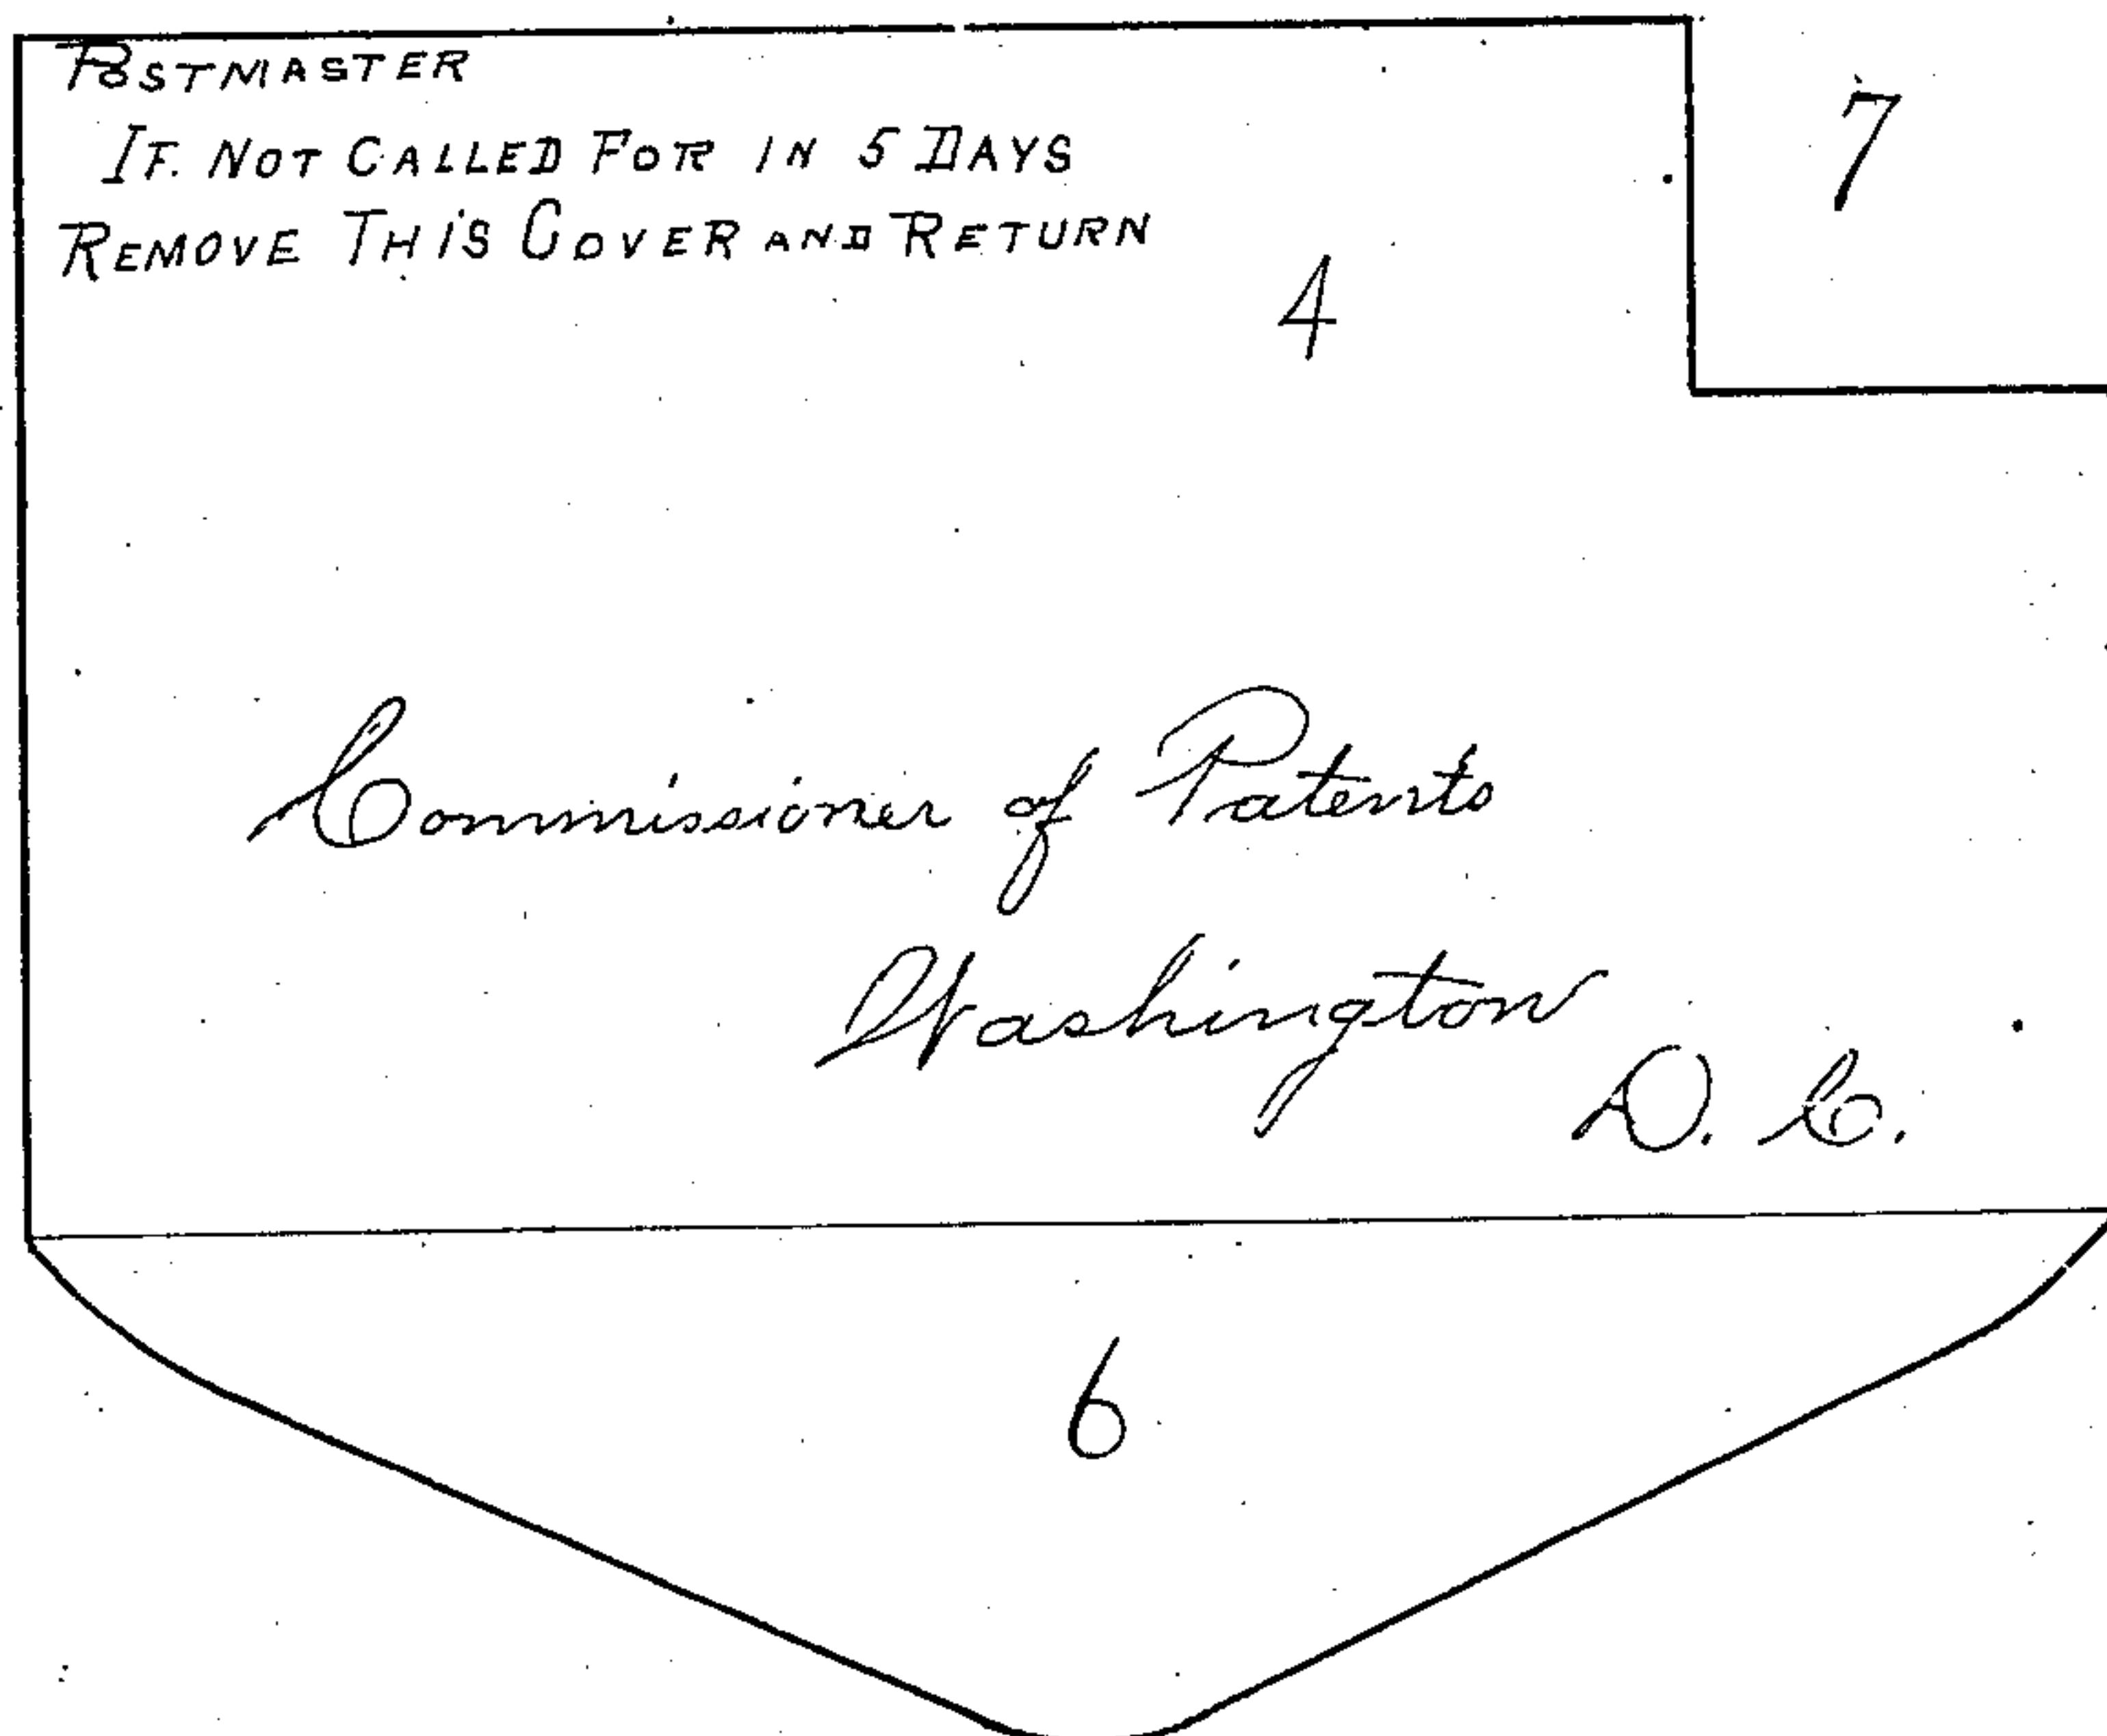 POSTMASTER
IF. NOT CALLED FOR IN 5 DAYS
REMOVE THIS COVER AND RETURN
7
4
Commissioner of Patents
Washington
D. C.
6